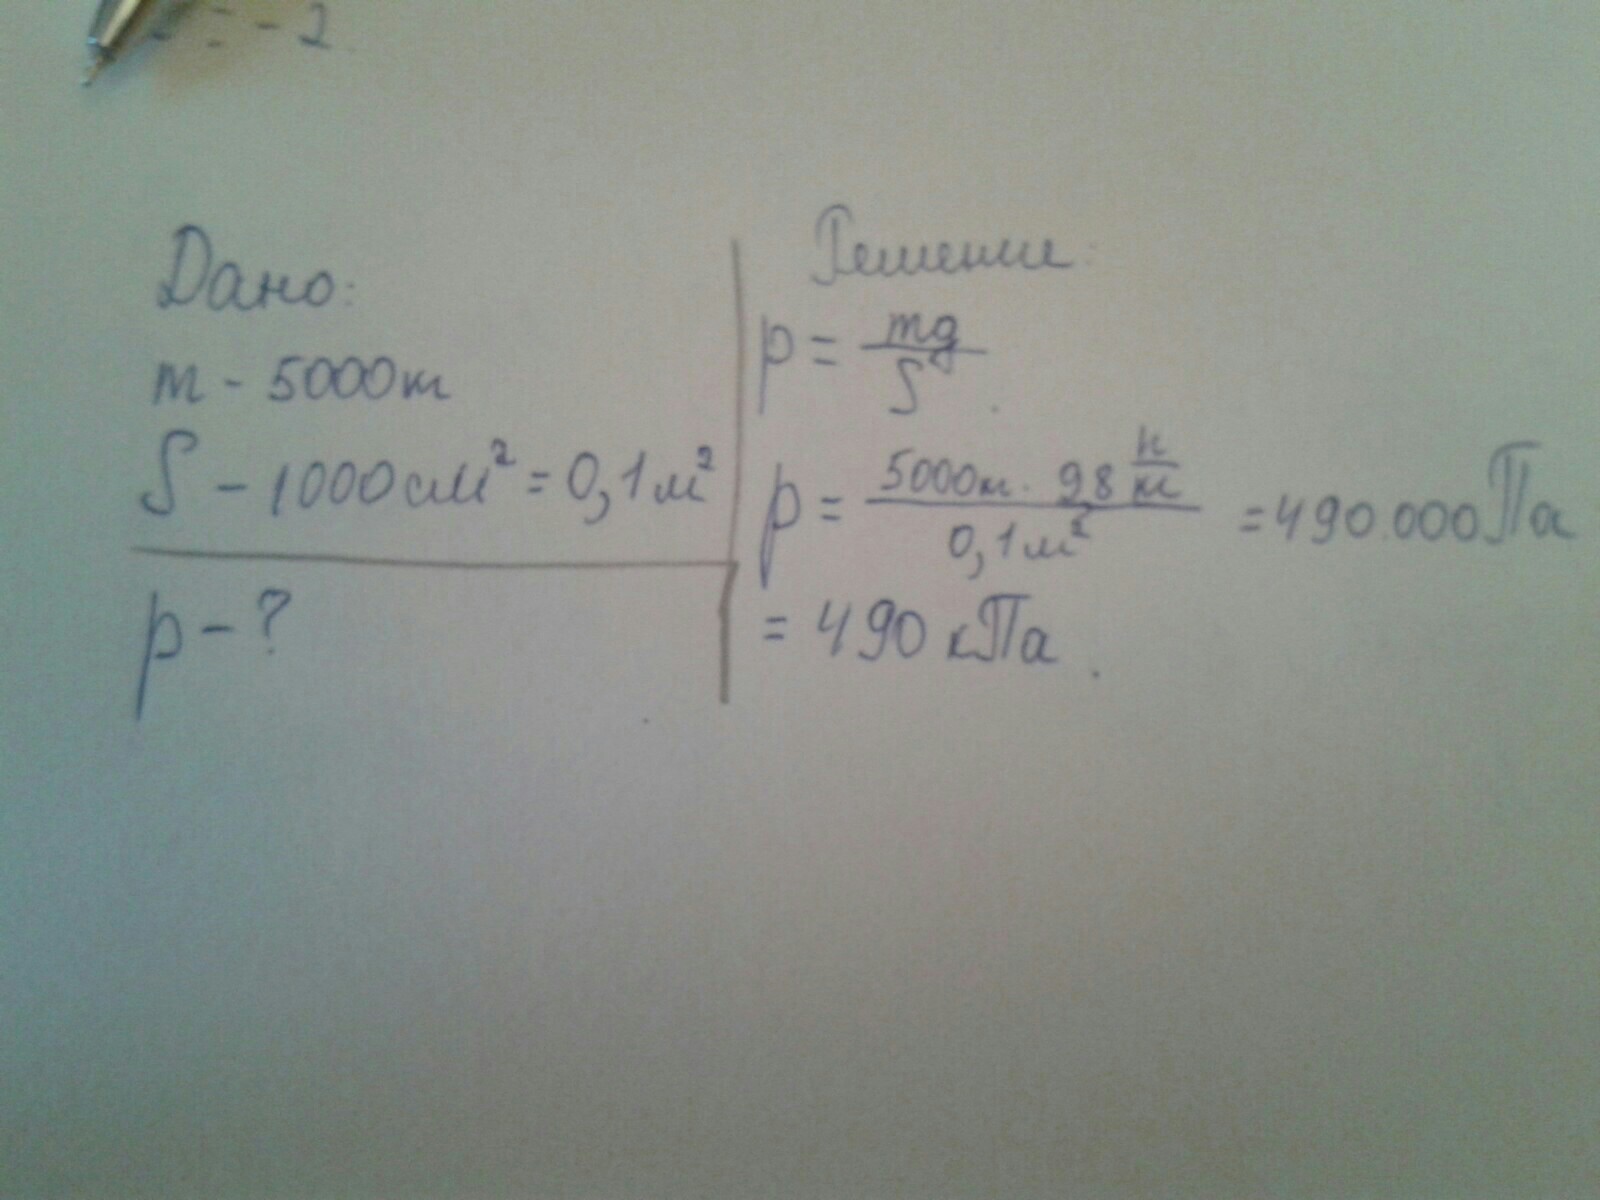 = -2
Дано:
m - 5000кг
S - 1000см² = 0,1м²
p - ?
Решение:
p = mg/S
p = 5000кг · 98 Н/кг / 0,1м² = 490.000Па
= 490 кПа.